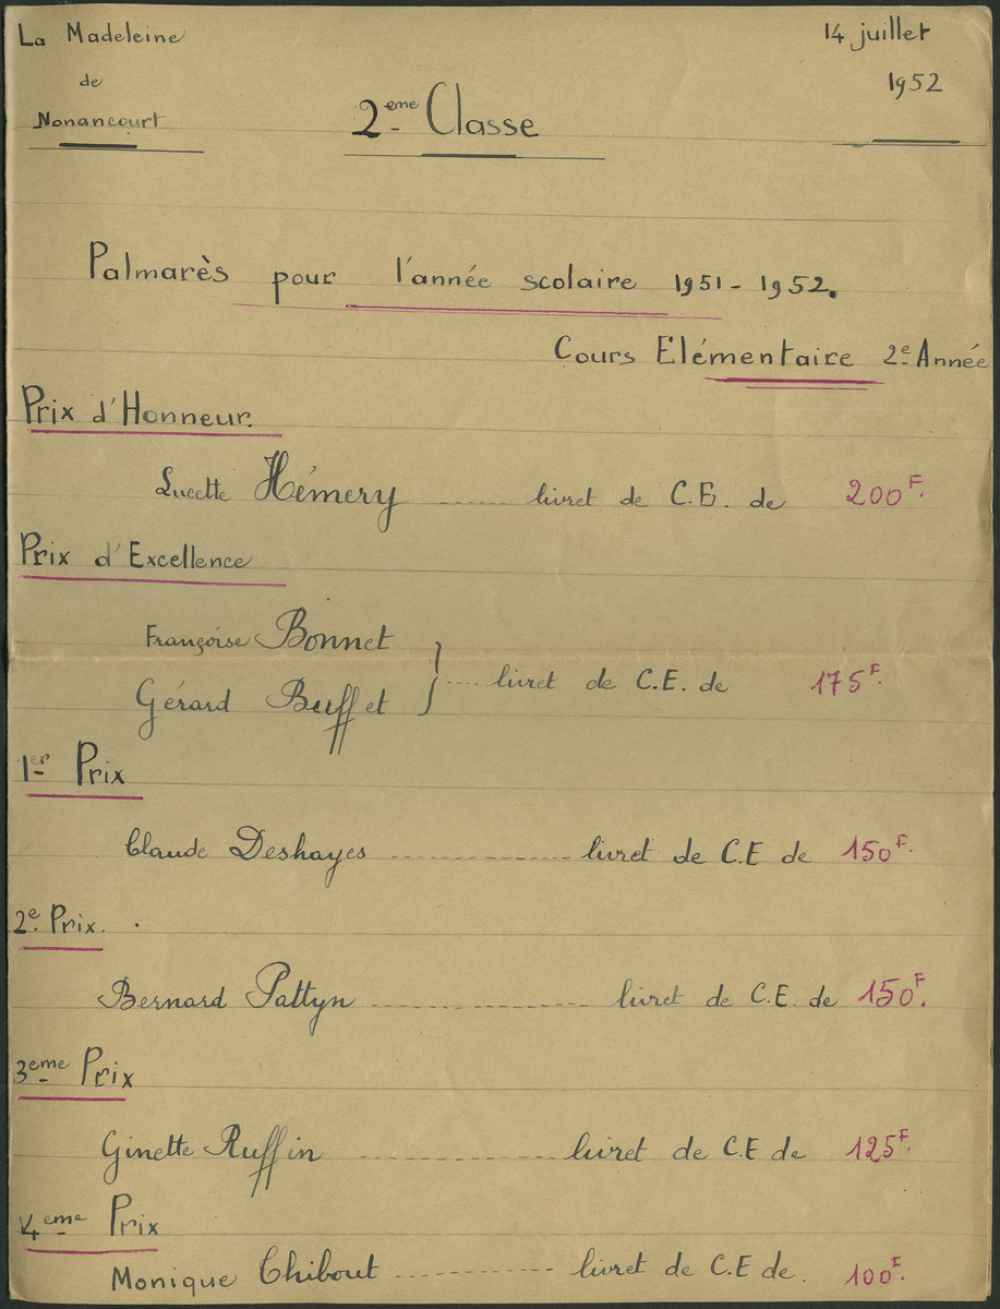 La Madeleine
de
Nonancourt
14 juillet
1952
2eme Classe
Palmarès pour l'année scolaire 1951-1952.
Cours Elémentaire 2e Année
Prix d'Honneur.
Lucette Hémery ........ livret de C.E. de 200F.
Prix d'Excellence
Françoise Bonnet
Gérard Buffet } .... livret de C.E. de 175F.
1er Prix
Claude Deshayes .................. livret de C.E de 150F.
2e. Prix.
Bernard Pattyn .................. livret de C.E. de 150F.
3eme Prix
Ginette Ruffin .................. livret de C.E de 125F.
4eme Prix
Monique Thibout .............. livret de C.E de. 100F.